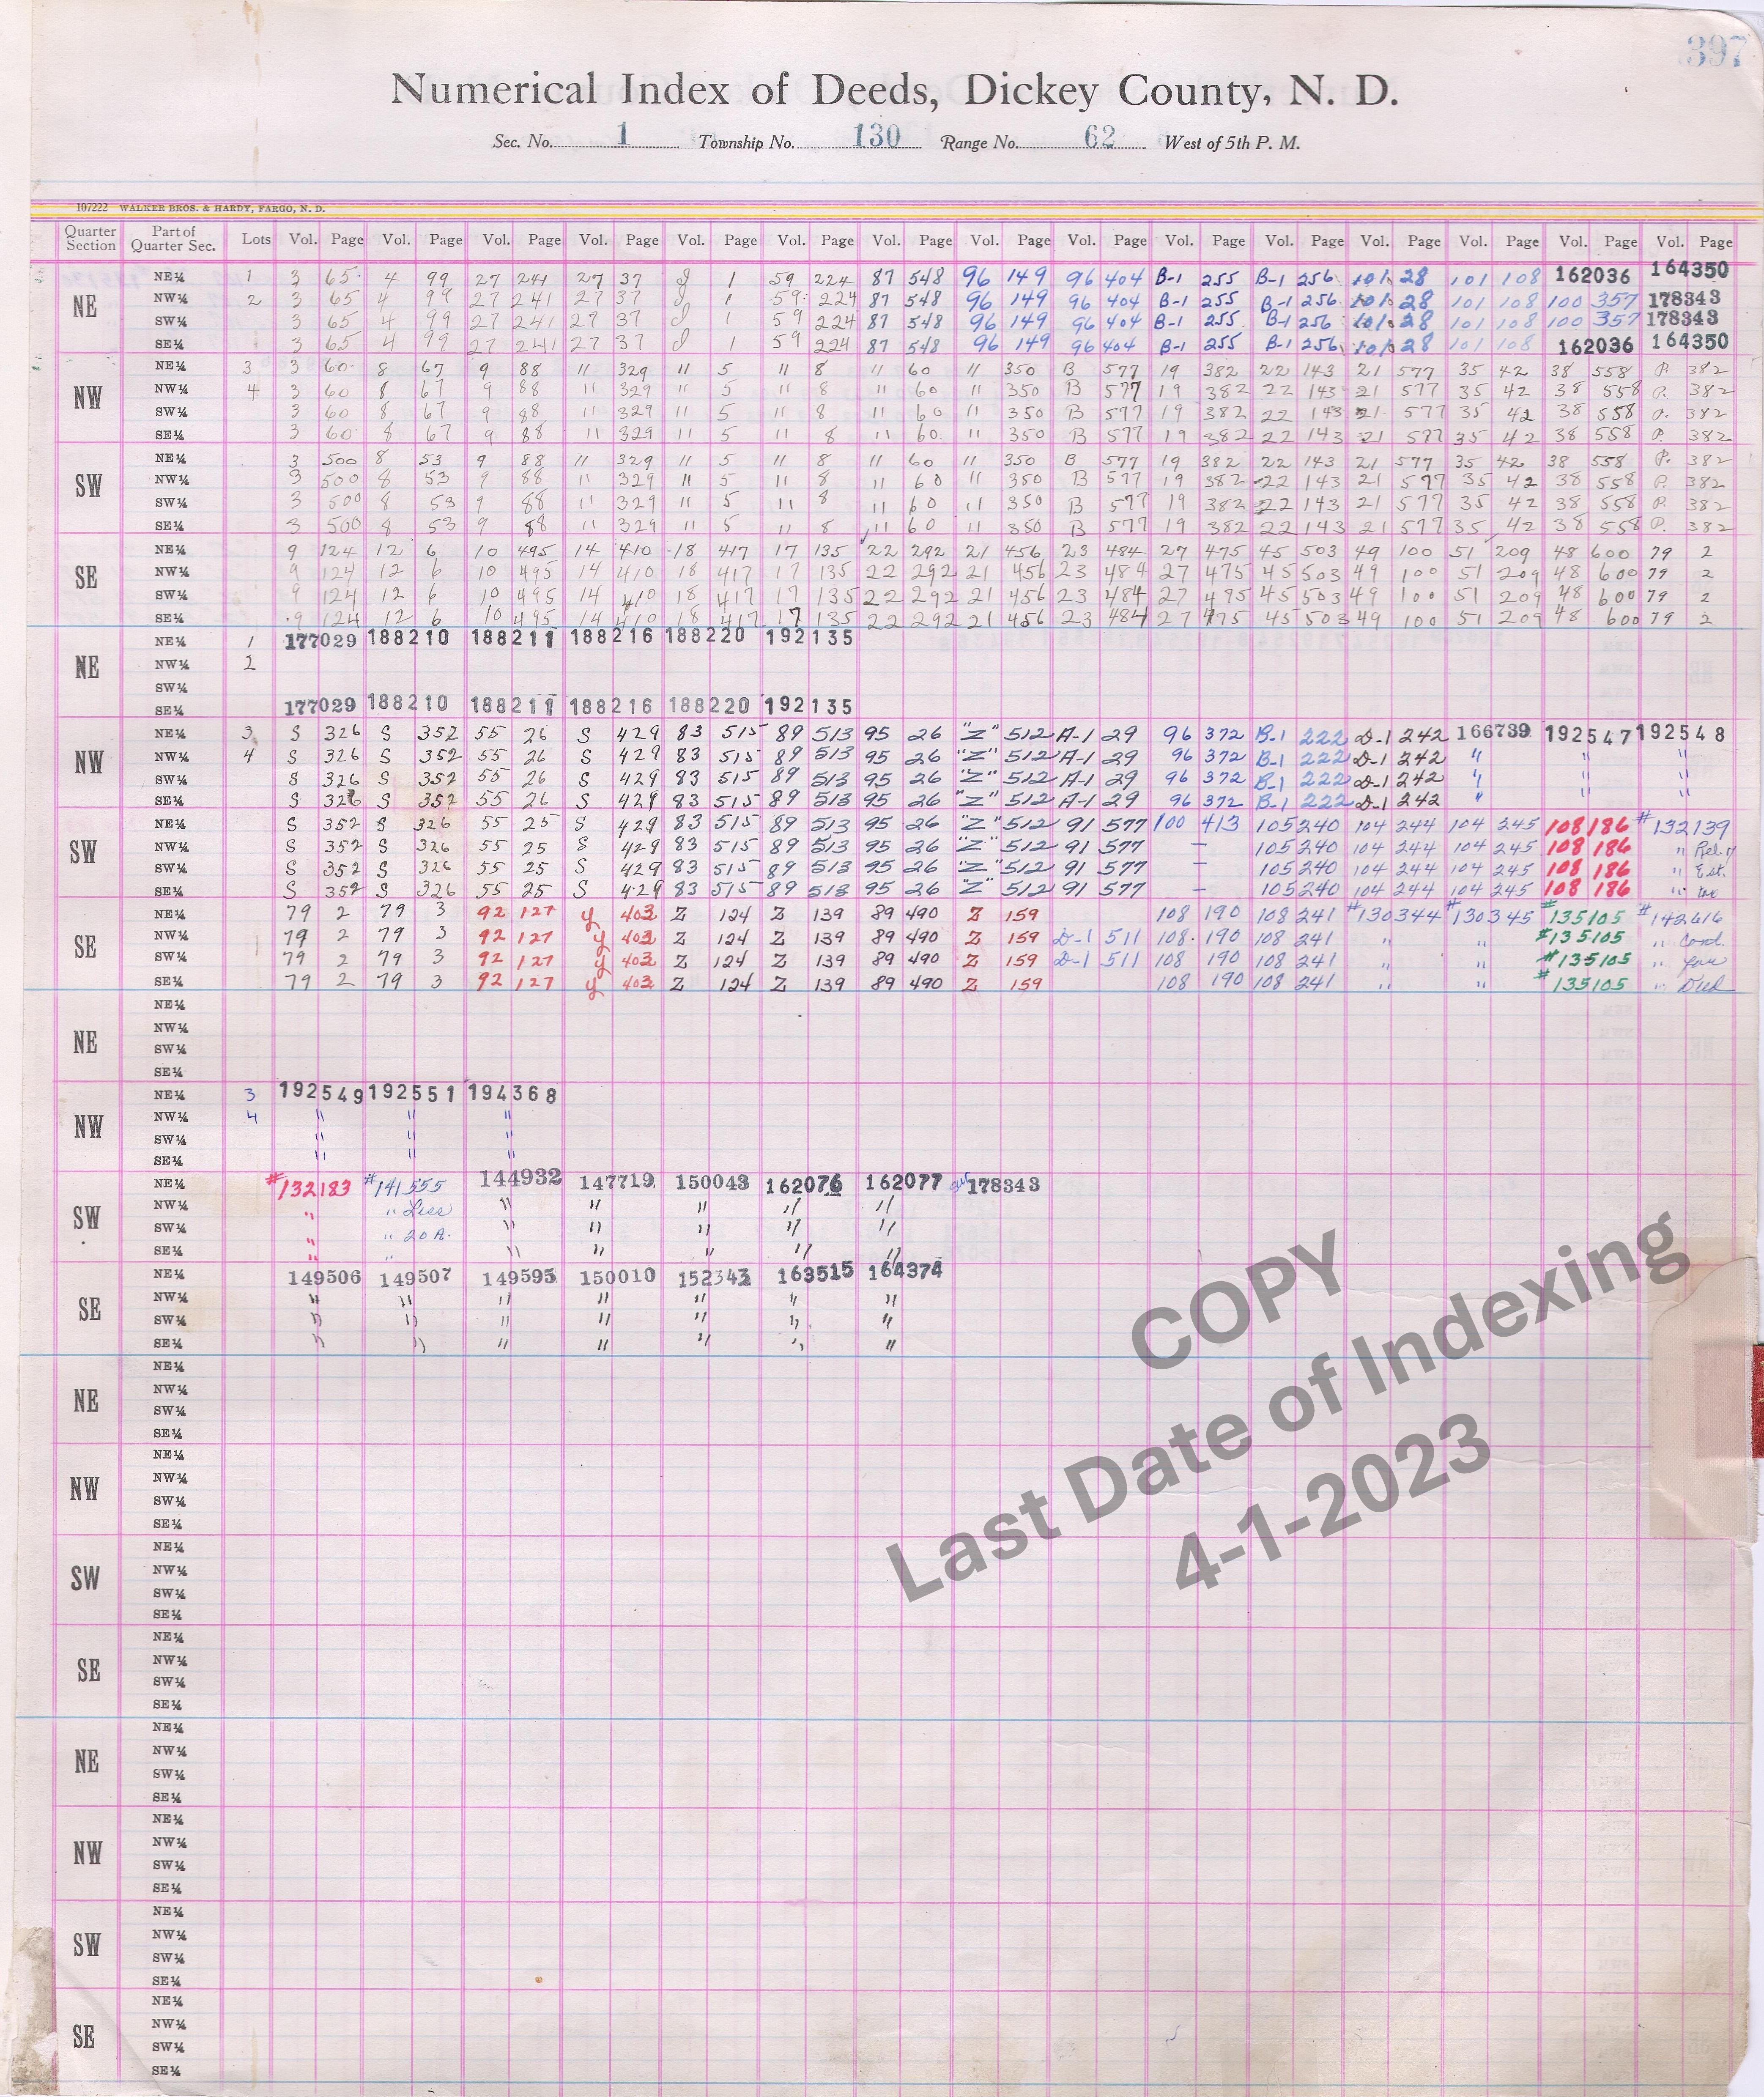 397
Numerical Index of Deeds, Dickey County, N. D.
Sec. No. 1 Township No. 130 Range No. 62 West of 5th P. M.
107222 WALKER BROS. & HARDY, FARGO, N. D.
Quarter Section Part of Quarter Sec. Lots Vol. Page Vol. Page Vol. Page Vol. Page Vol. Page Vol. Page Vol. Page Vol. Page Vol. Page Vol. Page Vol. Page Vol. Page Vol. Page Vol. Page Vol. Page
NE
NE¼ 1 3 65 4 99 27 241 27 37 1 59 224 87 548 96 149 96 404 B-1 255 B-1 256 101 28 101 108 162036 164350
NW¼ 2 3 65 4 99 27 241 27 37 1 59 224 87 548 96 149 96 404 B-1 255 B-1 256 101 28 101 108 100 357 178343
SW¼ 3 65 4 99 27 241 27 37 1 59 224 87 548 96 149 96 404 B-1 255 B-1 256 101 28 101 108 100 357 178343
SE¼ 3 65 4 99 27 241 27 37 1 59 224 87 548 96 149 96 404 B-1 255 B-1 256 101 28 101 108 162036 164350
NW
NE¼ 3 3 60 8 67 9 88 11 329 11 5 11 8 11 60 11 350 B 577 19 382 22 143 21 577 35 42 38 558 P. 382
NW¼ 4 3 60 8 67 9 88 11 329 11 5 11 8 11 60 11 350 B 577 19 382 22 143 21 577 35 42 38 558 P. 382
SW¼ 3 60 8 67 9 88 11 329 11 5 11 8 11 60 11 350 B 577 19 382 22 143 21 577 35 42 38 558 P. 382
SE¼ 3 60 8 67 9 88 11 329 11 5 11 8 11 60 11 350 B 577 19 382 22 143 21 577 35 42 38 558 P. 382
SW
NE¼ 3 500 8 53 9 88 11 329 11 5 11 8 11 60 11 350 B 577 19 382 22 143 21 577 35 42 38 558 P. 382
NW¼ 3 500 8 53 9 88 11 329 11 5 11 8 11 60 11 350 B 577 19 382 22 143 21 577 35 42 38 558 P. 382
SW¼ 3 500 8 53 9 88 11 329 11 5 11 8 11 60 11 350 B 577 19 382 22 143 21 577 35 42 38 558 P. 382
SE¼ 3 500 8 53 9 88 11 329 11 5 11 8 11 60 11 350 B 577 19 382 22 143 21 577 35 42 38 558 P. 382
SE
NE¼ 9 124 12 6 10 495 14 410 18 417 17 135 22 292 21 456 23 484 27 475 45 503 49 100 51 209 48 600 79 2
NW¼ 9 124 12 6 10 495 14 410 18 417 17 135 22 292 21 456 23 484 27 475 45 503 49 100 51 209 48 600 79 2
SW¼ 9 124 12 6 10 495 14 410 18 417 17 135 22 292 21 456 23 484 27 475 45 503 49 100 51 209 48 600 79 2
SE¼ 9 124 12 6 10 495 14 410 18 417 17 135 22 292 21 456 23 484 27 475 45 503 49 100 51 209 48 600 79 2
NE
NE¼ 1 177029 188210 188211 188216 188220 192135
NW¼ 2
SW¼
SE¼ 177029 188210 188211 188216 188220 192135
NW
NE¼ 3 S 326 S 352 55 26 S 429 83 515 89 513 95 26 "Z" 512 A-1 29 96 372 B-1 222 D-1 242 166739 192547 192548
NW¼ 4 S 326 S 352 55 26 S 429 83 515 89 513 95 26 "Z" 512 A-1 29 96 372 B-1 222 D-1 242 " " "
SW¼ S 326 S 352 55 26 S 429 83 515 89 513 95 26 "Z" 512 A-1 29 96 372 B-1 222 D-1 242 " " "
SE¼ S 326 S 352 55 26 S 429 83 515 89 513 95 26 "Z" 512 A-1 29 96 372 B-1 222 D-1 242 " " "
SW
NE¼ S 352 S 326 55 25 S 429 83 515 89 513 95 26 "Z" 512 91 577 100 413 105 240 104 244 104 245 108 186 #132139
NW¼ S 352 S 326 55 25 S 429 83 515 89 513 95 26 "Z" 512 91 577 — 105 240 104 244 104 245 108 186 "
SW¼ S 352 S 326 55 25 S 429 83 515 89 513 95 26 "Z" 512 91 577 — 105 240 104 244 104 245 108 186 " Est.
SE¼ S 352 S 326 55 25 S 429 83 515 89 513 95 26 "Z" 512 91 577 — 105 240 104 244 104 245 108 186 "
SE
NE¼ 79 2 79 3 92 127 y 403 Z 124 Z 139 89 490 Z 159 108 190 108 241 #130344 #130345 #135105 #142616
NW¼ 79 2 79 3 92 127 y 403 Z 124 Z 139 89 490 Z 159 D-1 511 108 190 108 241 " " #135105 " Cond.
SW¼ 79 2 79 3 92 127 y 403 Z 124 Z 139 89 490 Z 159 D-1 511 108 190 108 241 " " #135105 " for
SE¼ 79 2 79 3 92 127 y 403 Z 124 Z 139 89 490 Z 159 108 190 108 241 " " #135105 " Deed
NE
NE¼
NW¼
SW¼
SE¼
NW
NE¼ 3 192549 192551 194368
NW¼ 4 " " "
SW¼ " " "
SE¼ " " "
SW
NE¼ #132183 #141555 144932 147719 150043 162076 162077 178343
NW¼ " " Less " " " " "
SW¼ " " 20 A. " " " " "
SE¼ " " " " " " "
SE
NE¼ 149506 149507 149595 150010 152343 163515 164374
NW¼ " " " " " " "
SW¼ " " " " " " "
SE¼ " " " " " " "
NE
NE¼
NW¼
SW¼
SE¼
NW
NE¼
NW¼
SW¼
SE¼
SW
NE¼
NW¼
SW¼
SE¼
SE
NE¼
NW¼
SW¼
SE¼
NE
NE¼
NW¼
SW¼
SE¼
NW
NE¼
NW¼
SW¼
SE¼
SW
NE¼
NW¼
SW¼
SE¼
SE
NE¼
NW¼
SW¼
SE¼
COPY
Last Date of Indexing
4-1-2023